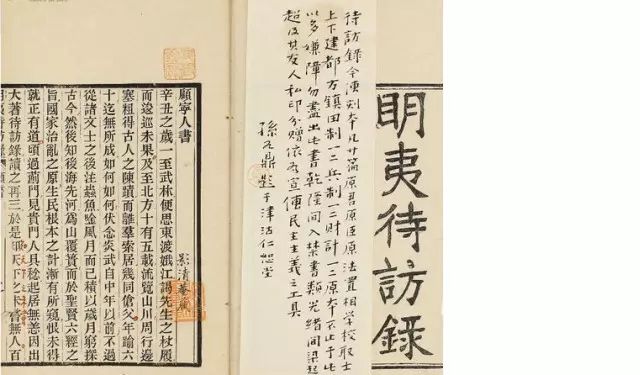 明夷待訪錄
待訪錄今傳刻本凡廿篇原君原臣原法置相學校取士
上下建都方鎮田制一二三兵制一二三財計一二三原本不止于此
以多嫌諱勿盡出也書乾隆間入禁書類光緒間梁啟
超及其友人私印分贈依為宣傳民主主義之工具
孫 鼎題于津沽仁恕堂
顧寧人書
辛丑之歲一至武林便思東渡娥江謁先生之杖履
而逡巡未果及至北方十有五載流覽山川周行邊
塞粗得古人之陳蹟而離羣索居幾同傖父年踰六
十迄無所成如何如何伏念炎武自中年以前不過
從諸文士之後注蟲魚吟風月而已積以歲月窮探
古今然後知後海先河爲山覆簣而於聖賢六經之
旨國家治亂之原生民根本之計漸有所窺恨未得
就正有道頃過薊門見貴門人具稔起居無恙因出
大著待訪錄讀之再三於是知天下之未嘗無人百